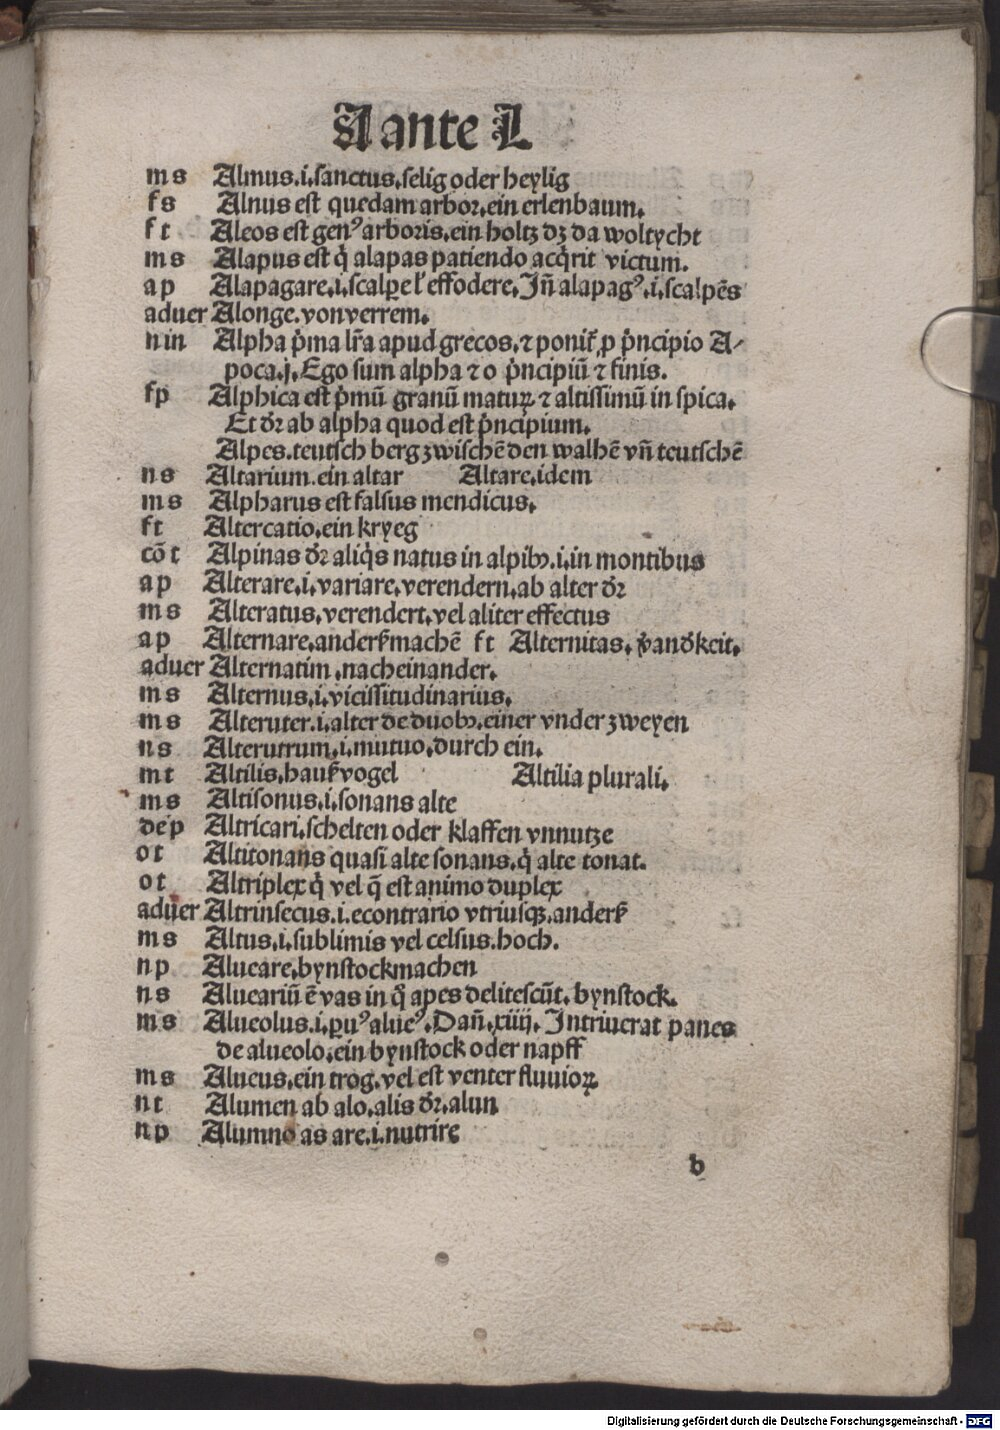 A ante L
m s Almus.i.sanctus.selig oder heylig
f s Alnus est quedam arbor.ein erlenbaum.
f t Aleos est genꝰ arboris.ein holtz dz da woltycht
m s Alapus est q̇ alapas patiendo acq̇rit victum.
a p Alapagare.i.scalpe leffodere.Jn̄ alapagꝰ.i.scalpēs
aduer Alonge.von verrem.
n in Alpha ṗma lr̄a apud grecos.⁊ ponit᷑ ꝓ ṗncipio A⸗
poca.j.Ego sum alpha ⁊ o ṗncipiū ⁊ finis.
f p Alphica est ṗmū granū matuꝝ ⁊ altissimū in spica.
Et dr̄ ab alpha quod est ṗncipium.
Alpes.teutsch berg zwischē den walhē vn̄ teutschē
n s Altarium.ein altar Altare.idem
m s Alpharus est falsus mendicus.
f t Altercatio.ein kryeg
cō t Alpinas dr̄ aliq̇s natus in alpibꝫ.i.in montibus
a p Alterare.i.variare.verendern.ab alter dr̄
m s Alteratus.verendert.vel aliter effectus
a p Alternare.anderẜmachē f t Alternitas.v̄andẜkeit.
aduer Alternatim.nacheinander.
m s Alternus.i.vicissitudinarius.
m s Alteruter.i.alter de duobꝫ.einer vnder zweyen
n s Alterutrum.i.mutuo.durch ein.
m t Altilis.haußvogel Altilia plurali.
m s Altisonus.i.sonans alte
de p Altricari.schelten oder klaffen vnnutze
o t Altitonans quasi alte sonans.q̇ alte tonat.
o t Altriplex q̇ vel q̄ est animo duplex
aduer Altrinsecus.i.econtrario vtriusqꝫ.anderẜ
m s Altus.i.sublimis vel celsus.hoch.
n p Alueare.bynstockmachen
n s Aluearıū ē vas in q̊ apes delitescūt.bynstock.
m s Alueolus.i.ꝑuꝰ alueꝰ.Dan̄.xiiij.Intriuerat panes
de alueolo.ein bynstock oder napff
m s Alueus.ein trog.vel est venter fluuioꝝ
n t Alumen ab alo.alis dr̄.alun
n p Alumno as are.i.nutrire
b
Digitalisierung gefördert durch die Deutsche Forschungsgemeinschaft - DFG